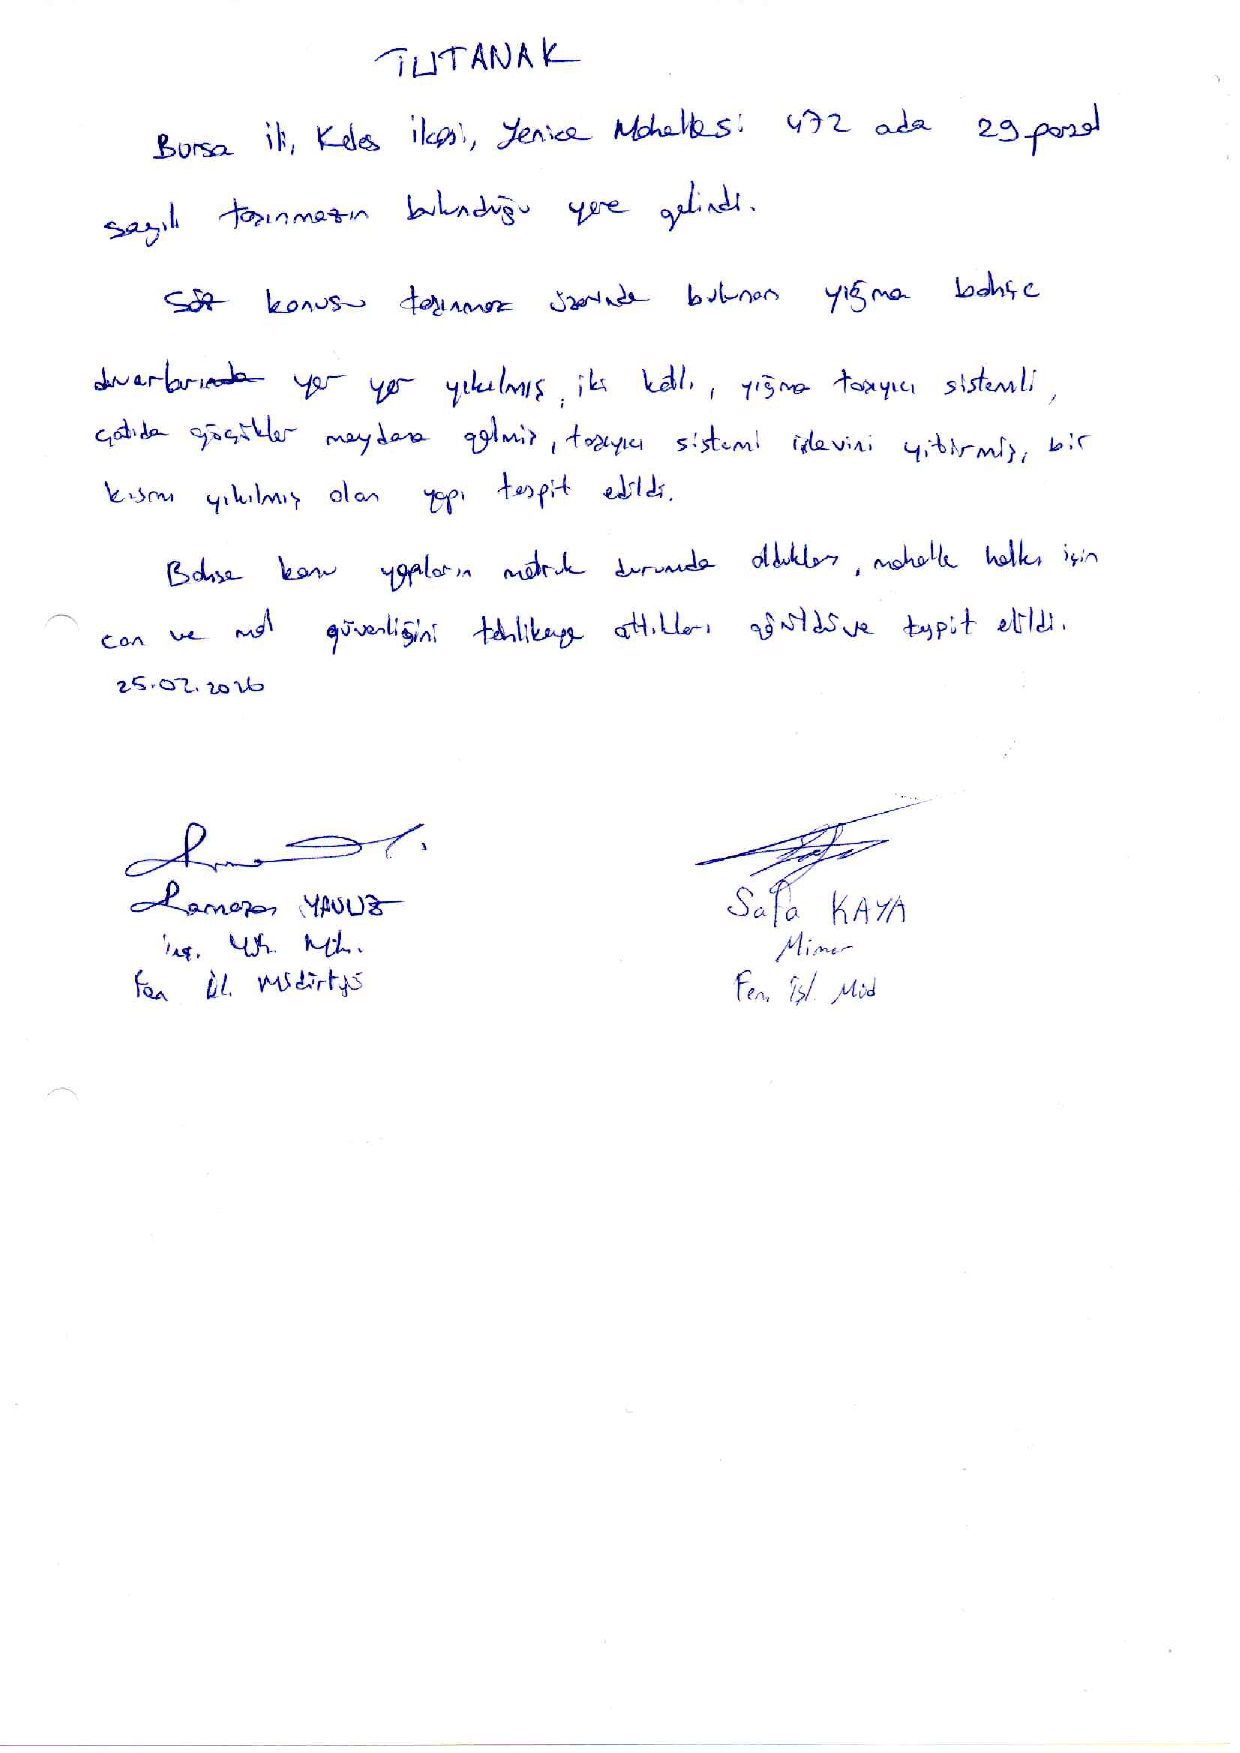 TUTANAK
Bursa ili, Keles ilçesi, Yenice Mahallesi 472 ada 29 parsel
sayılı taşınmazın bulunduğu yere gelindi.
Söz konusu taşınmaz üzerinde bulunan yığma bahçe
duvarları yer yer yıkılmış, iki katlı, yığma taşıyıcı sistemli,
çatıda göçükler meydana gelmiş, taşıyıcı sistemi işlevini yitirmiş, bir
kısmı yıkılmış olan yapı tespit edildi.
Bahse konu yapıların metruk durumda oldukları, mahalle halkı için
can ve mal güvenliğini tehlikeye attıkları görüldü ve tespit edildi.
25.02.2026
Ramazan YAVUZ
Safa KAYA
İnş. Müh.
Mimar
Fen İşl. Müdürlüğü
Fen. İşl. Müd